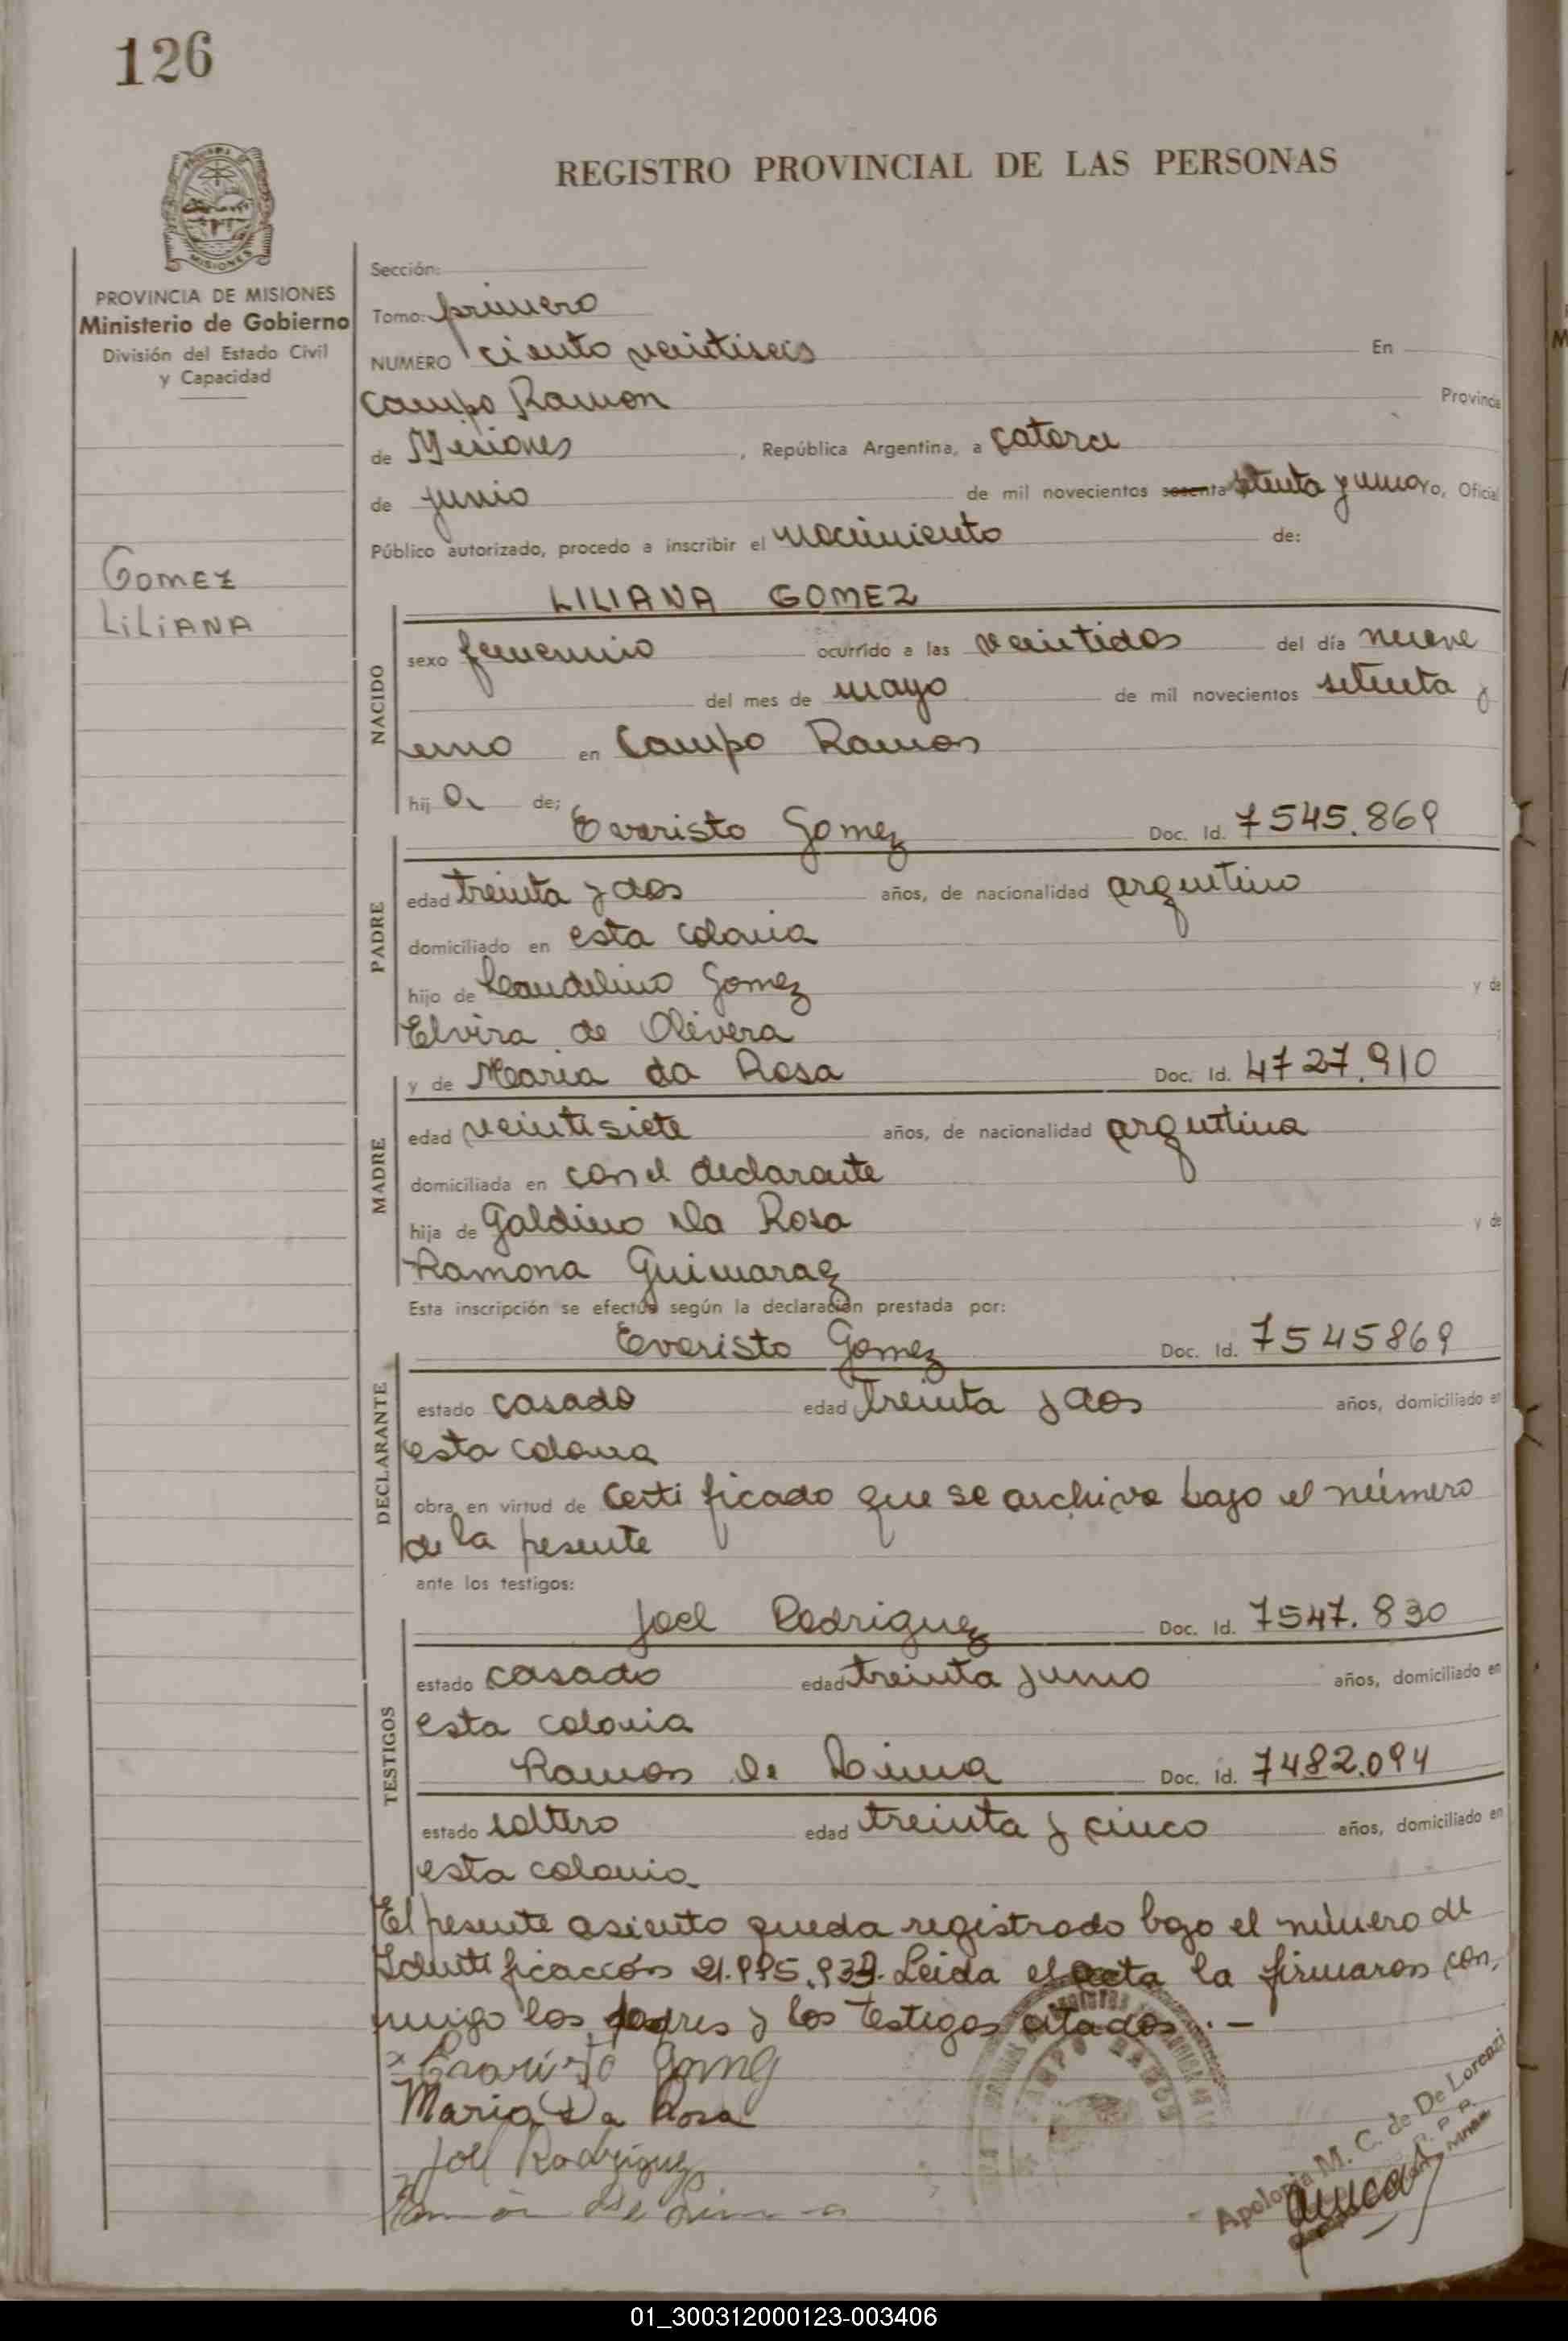 126
REGISTRO PROVINCIAL DE LAS PERSONAS
MISIONES
PROVINCIA DE MISIONES
Ministerio de Gobierno
División del Estado Civil
y Capacidad
Gomez
LiLiANA
Sección:
Tomo: primero
NUMERO ciento veintiseis En
Campo Ramon Provincia
de Misiones, República Argentina, a catorce
de junio de mil novecientos sesenta setenta y uno Yo, Oficial
Público autorizado, procedo a inscribir el nacimiento de:
NACIDO
LILIANA GOMEZ
sexo femenino ocurrido a las veintidos del día nueve
del mes de mayo de mil novecientos setenta y
uno en Campo Ramon
hija de:
PADRE
Evaristo Gomez Doc. Id. 7545.869
edad treinta y dos años, de nacionalidad argentino
domiciliado en esta colonia
hijo de Gomez y de
Elvira de Olivera
MADRE
y de Maria da Rosa Doc. Id. 4727.910
edad veintisiete años, de nacionalidad argentina
domiciliada en con el declarante
hija de Galdino Da Rosa y de
Ramona Guimaraez
Esta inscripción se efectúa según la declaración prestada por:
DECLARANTE
Evaristo Gomez Doc. Id. 7545869
estado casado edad treinta y dos años, domiciliado en
esta colonia
obra en virtud de Certificado que se archiva bajo el número
de la presente
ante los testigos:
TESTIGOS
Joel Rodriguez Doc. Id. 7547.830
estado casado edad treinta y uno años, domiciliado en
esta colonia
Ramon de Lima Doc. Id. 7482.094
estado soltero edad treinta y cinco años, domiciliado en
esta colonia
El presente asiento queda registrado bajo el número de
Identificación Leida el acta la firmaron con-
migo los padres y los testigos citados.-
Evaristo Gomez
Maria Da Rosa
Joel Rodriguez
Ramon De Lima
CAMPO RAMON
Apolonia M. C. de De Lorenzi
01_300312000123-003406